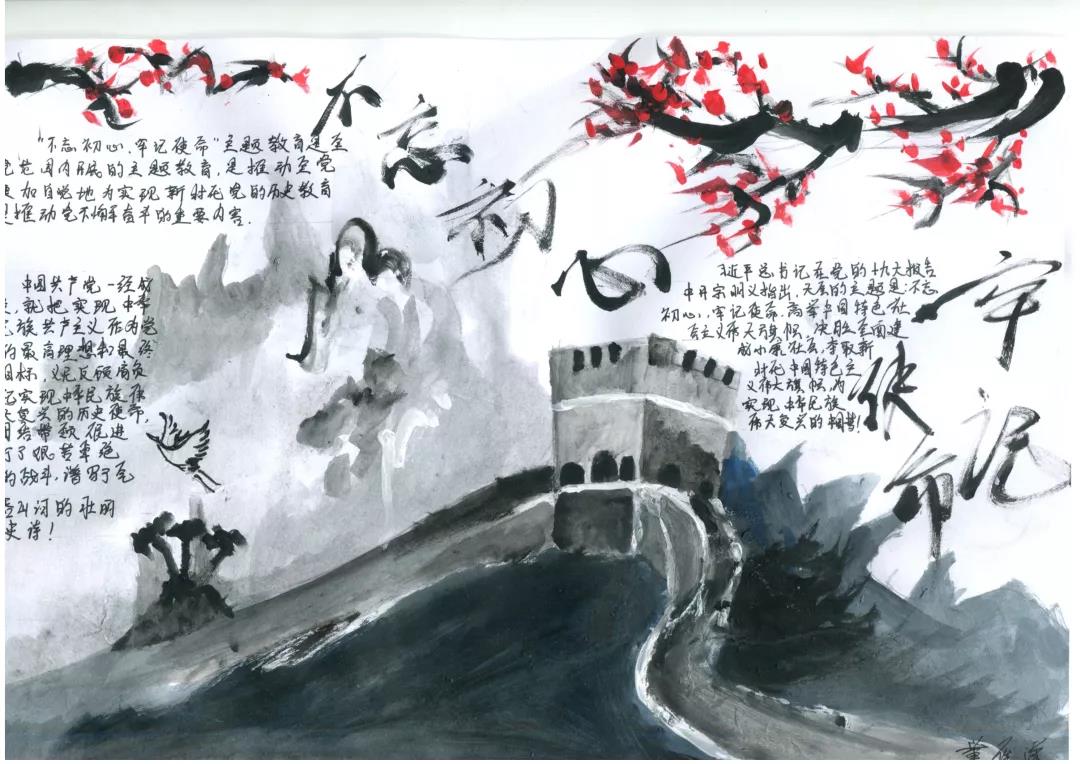 不忘初心
牢记使命
"不忘初心,牢记使命"主题教育是全
党范围内展的主题教育,是推动全党
更加自觉地为实现新时代党的历史教育
是推动党不懈奋斗的重要内容.
中国共产党一经成
立,就把实现中华
民族共产主义作为党
的最高理想和最终
目标,义无反顾肩负
记实现中华民族伟
大复兴的历史使命,
团结带领促进
行了艰苦卓绝
的战斗,谱写了气
吞山河的壮丽
史诗!
习近平总书记在党的十九大报告
中开宗明义指出,大会的主题是:不忘
初心,牢记使命,高举中国特色社
会主义伟大旗帜,决胜全面建
成小康社会,夺取新
时代中国特色主
义伟大旗帜,为
实现中华民族
伟大复兴的